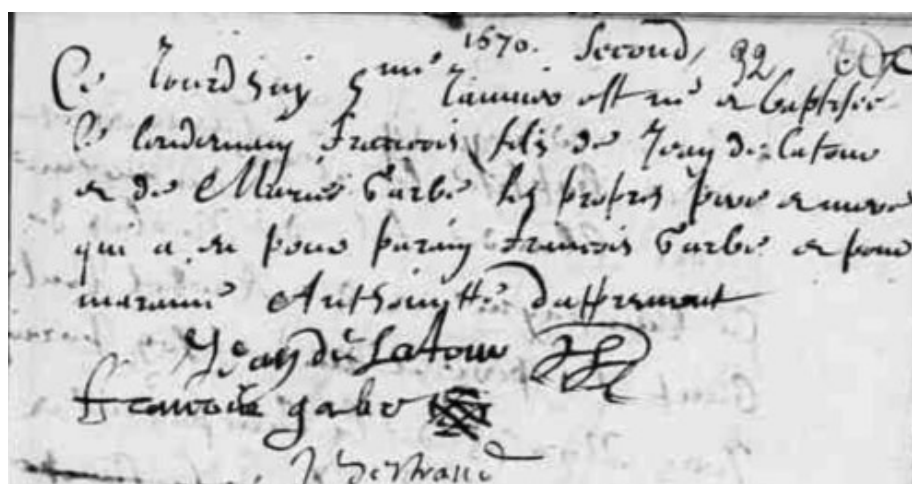 1670. Second, 92
Ce Jourdhuy 5me Janvier est né et baptisée
le lendemain Francois filz de Jean de Latour
et de Marie Garbe les propres pere et mere
qui a eu pour parain Francois Garbe et pour
maraine Anthoinette daspremont
Jean de Latour
Francois gabe
Bertrand